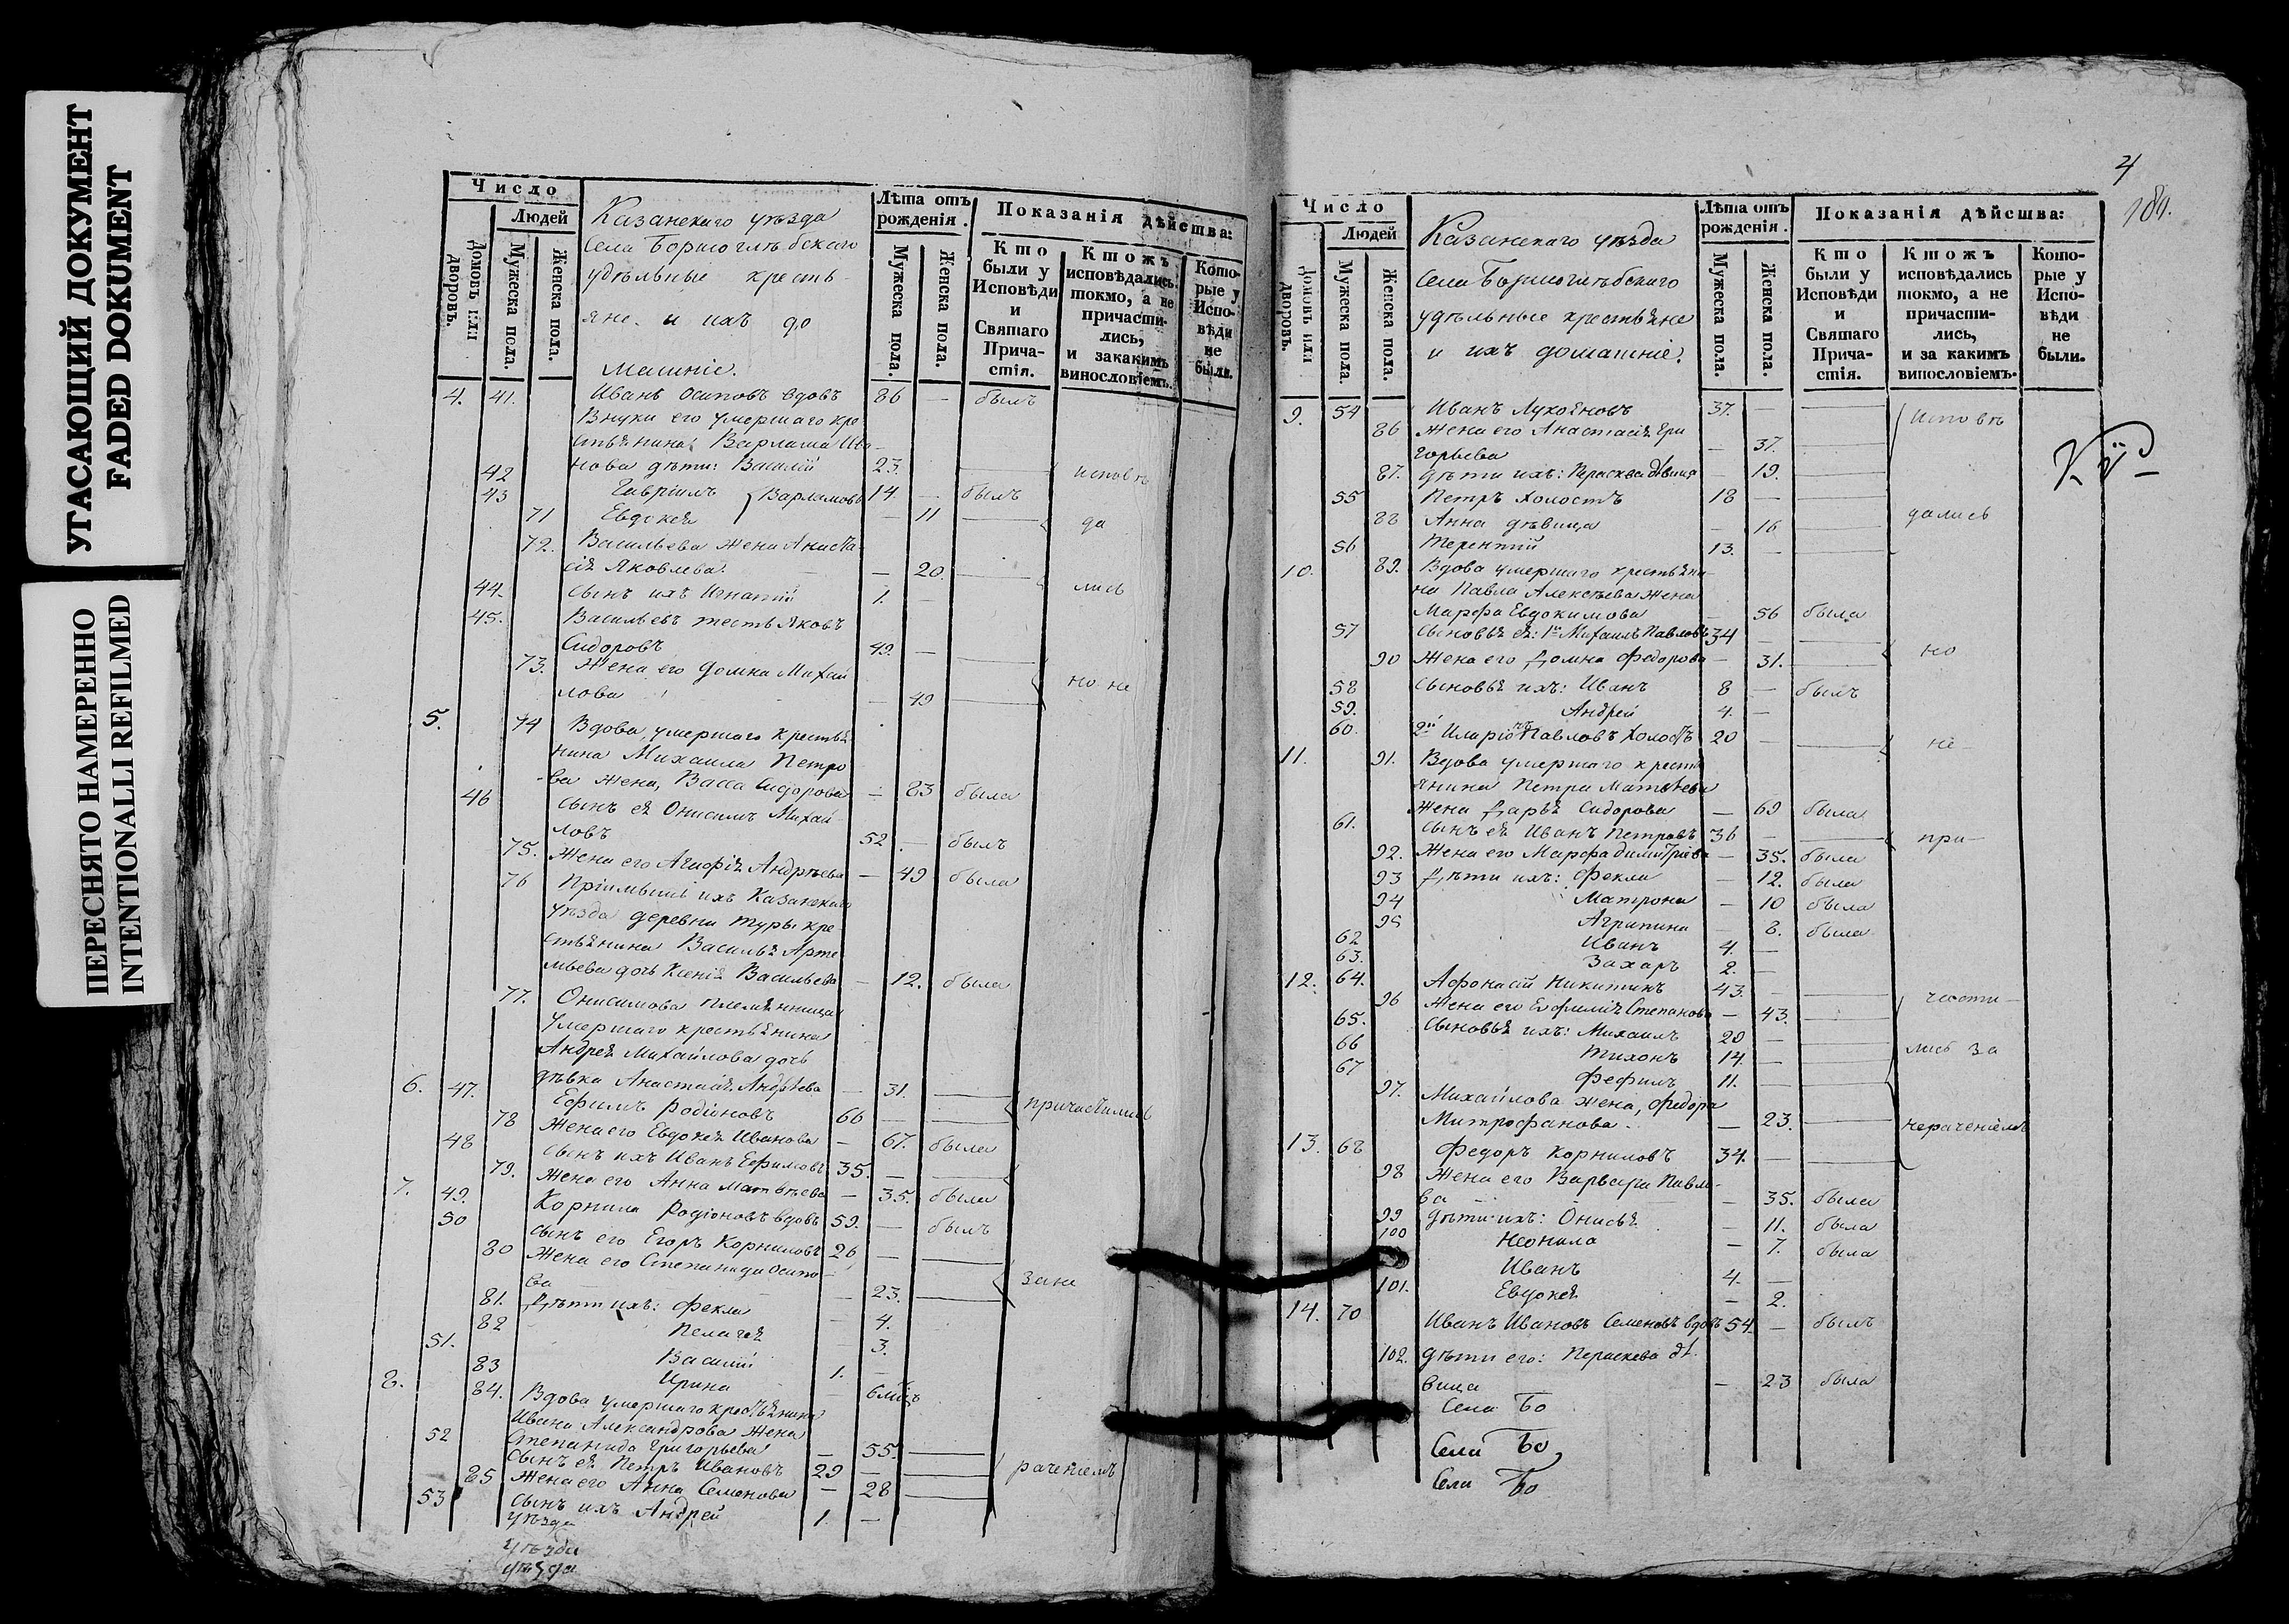 УТАСАЮЩИЙ ДОКУМЕНТ
FADED DOKUMENT
ПЕРЕСНЯТО НАМЕРЕННО
INTENTIONALLI REFILMED
Число
Людей
Домовъ или дворовъ.
Мужеска пола.
Женска пола.
Казанскаго уѣзда
Села Борисоглѣбскаго
удѣльные кресть-
яне и ихъ до
машніе.
Лѣта отъ рожденія.
Мужеска пола.
Женска пола.
Показанія дѣйства:
Кто были у Исповѣди и Святаго Прича-стія.
Ктожъ исповѣдались токмо, а не причасти-лись, и закакимъ винословіемъ.
Кото-рые у Испо-вѣди не были.
4. 41. Иванъ Осиповъ вдовъ 86 — былъ
Внуки его умершаго кре
стьянина Варлама Ива-
42 нова дѣти: Василій 23. исповѣ
43 Гавріилъ Варламовы 14 — былъ
71 Евдокея — 11 — да
72. Васильева жена Анаста-
сія Яковлева — 20.
44. сынъ ихъ Игнатій 1. — лись
45. Васильевъ тесть Яковъ
Сидоровъ 49. —
73. Жена его Домна Михай
лова — 49 но не
5. 74 Вдова умершаго крестья
нина Михаила Петро
ва жена, Васса Сидорова — 83 была
46 сынъ ея Онисимъ Михай-
ловъ 52 — былъ
75. Жена его Агафія Андрѣева — 49 была
76 Пріимышъ ихъ Казанскаго
уѣзда деревни Туры кре
стьянина Василья Арте
мьева дочь Ксенія Васильева — 12. была
77. Онисимова племянница
умершаго крестьянина
Андрея Михайлова дочь
дѣвка Анастасія Андрѣева — 31.
6. 47. Ефимъ Родіоновъ 66 — причастились
78 Жена его Евдокея Иванова — 67. была
48 сынъ ихъ Иванъ Ефимовъ 35. —
79. Жена его Анна Матвѣева — 35. была
7. 49. Корнила Родіоновъ вдовъ 59. — былъ
50 сынъ его Егоръ Корниловъ 26 —
80 Жена его Степанида Осипо-
ва — 23. за не
81. Дѣти ихъ: Фекла — 4.
82 Пелагея — 3.
51. Василій 1. —
83 Ирина — 6 мцъ
8. 84. Вдова умершаго крестьянина
Ивана Александрова жена
Степанида Григорьева — 55.
52 Сынъ ея Петръ Ивановъ 29 — раченіемъ
85 Жена его Анна Семенова — 28
53 сынъ ихъ Андрей 1. —
уѣзда
уѣзда
уѣзда
4
189.
Число
Людей
Домовъ или дворовъ.
Мужеска пола.
Женска пола.
Казанскаго уѣзда
Села Борисоглѣбскаго
удѣльные крестьяне
и ихъ домашніе.
Лѣта отъ рожденія.
Мужеска пола.
Женска пола.
Показанія дѣйства:
Кто были у Исповѣди и Святаго Прича-стія.
Ктожъ исповѣдались токмо, а не причасти-лись, и за какимъ винословіемъ.
Кото-рые у Испо-вѣди не были.
9. 54 Иванъ Лукояновъ 37. — Исповѣ
86 Жена его Анастасія Гри
горьева — 37.
87. Дѣти ихъ: Пераскева дѣвица — 19.
55 Петръ холостъ 18 —
88 Анна дѣвица — 16 дались
56 Терентій 13. —
10. 89. Вдова умершаго крестьяни-
на Павла Алексѣева жена
Марфа Евдокимова — 56 была
57 Сыновья ея: 1й Михаилъ Павловъ 34 —
90 Жена его Домна Федорова — 31. но
58 Сыновья ихъ: Иванъ 8 — былъ
59. Андрей 4. —
60. 2й Иларіонъ Павловъ холостъ 20 — не-
11. 91. Вдова умершаго кресть
янина Петра Матвѣева
жена Дарья Сидорова — 69 была
61. сынъ ея Иванъ Петровъ 36 — при-
92. Жена его Марфа Димитріева — 35. была
93 Дѣти ихъ: Фекла — 12. была
94 Матрона — 10 была
95 Агрипина — 8. была
62 Иванъ 4. —
63. Захаръ 2. —
12. 64. Афонасій Никитинъ 43. —
96 Жена его Евфимія Степанова — 43. части-
65. Сыновья ихъ: Михаилъ 20 —
66 Тихонъ 14. — лись за
67 Фефилъ 11. —
97. Михайлова жена, Федора
Митрофанова — 23. нераченіемъ
13. 68 Федоръ Корниловъ 34. —
98 Жена его Варвара Павло-
ва — 35. была
99 Дѣти ихъ: Онисья — 11. была
100 Неонила — 7. была
Иванъ 4. —
101. Евдокея — 2.
14. 70 Иванъ Ивановъ Семеновъ вдовъ 54. — былъ
102. Дѣти его: Пераскева дѣ-
вица — 23 была
Села Бо
Села Бо
Села Бо